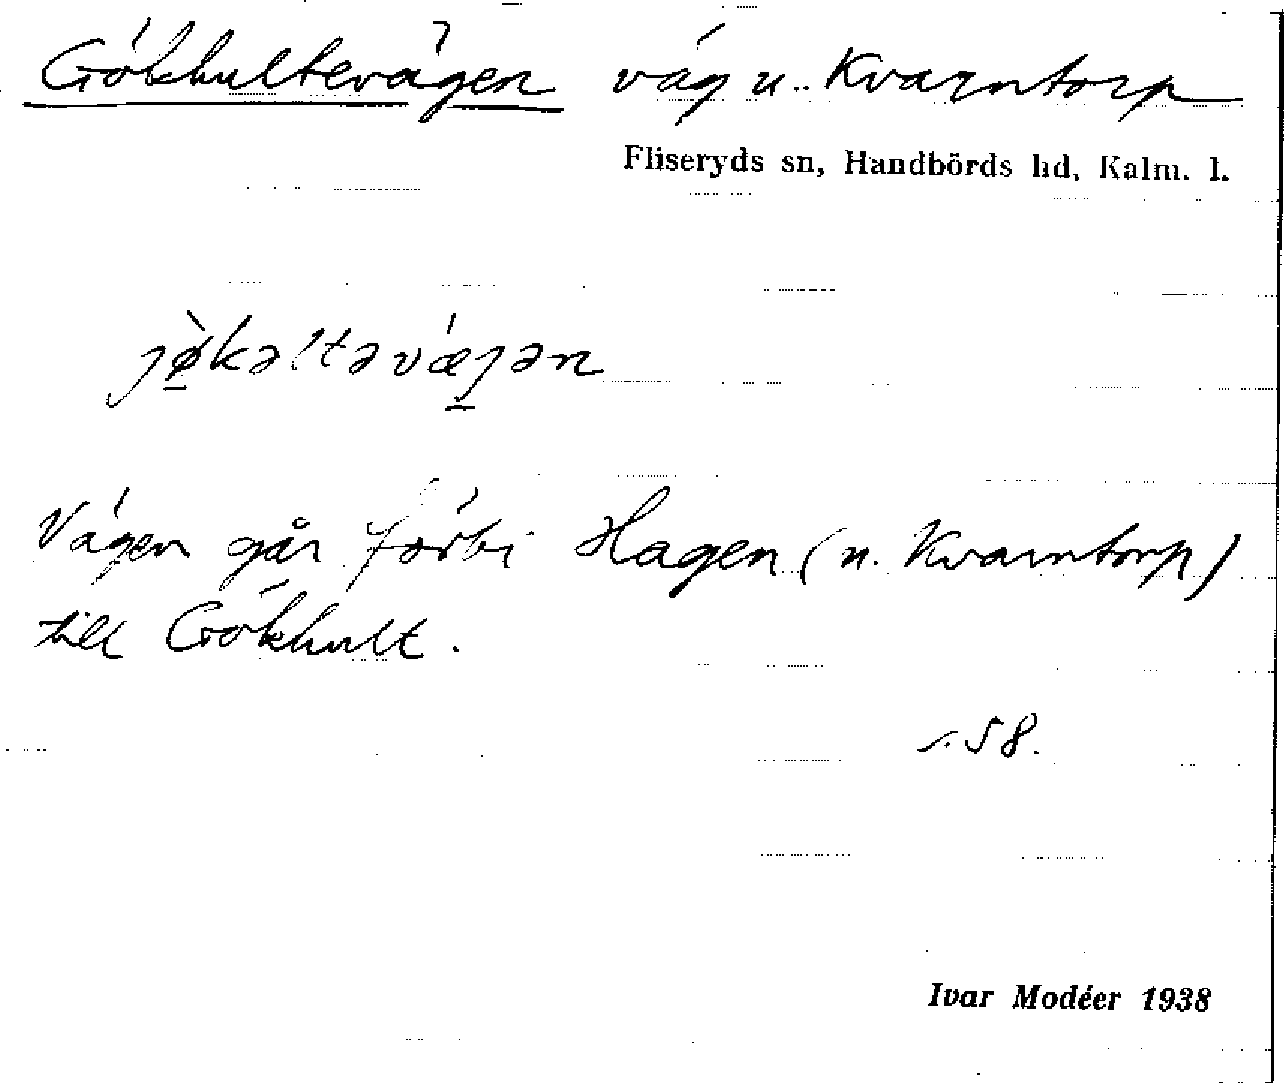 Gökhultevägen väg u. Kvarntorp
Fliseryds sn, Handbörds hd, Kalm. l.
jø̠̀kəltəvǽ̠jən
Vägen går förbi Hagen (u. Kvarntorp)
till Gökhult.
s. 58.
Ivar Modéer 1938